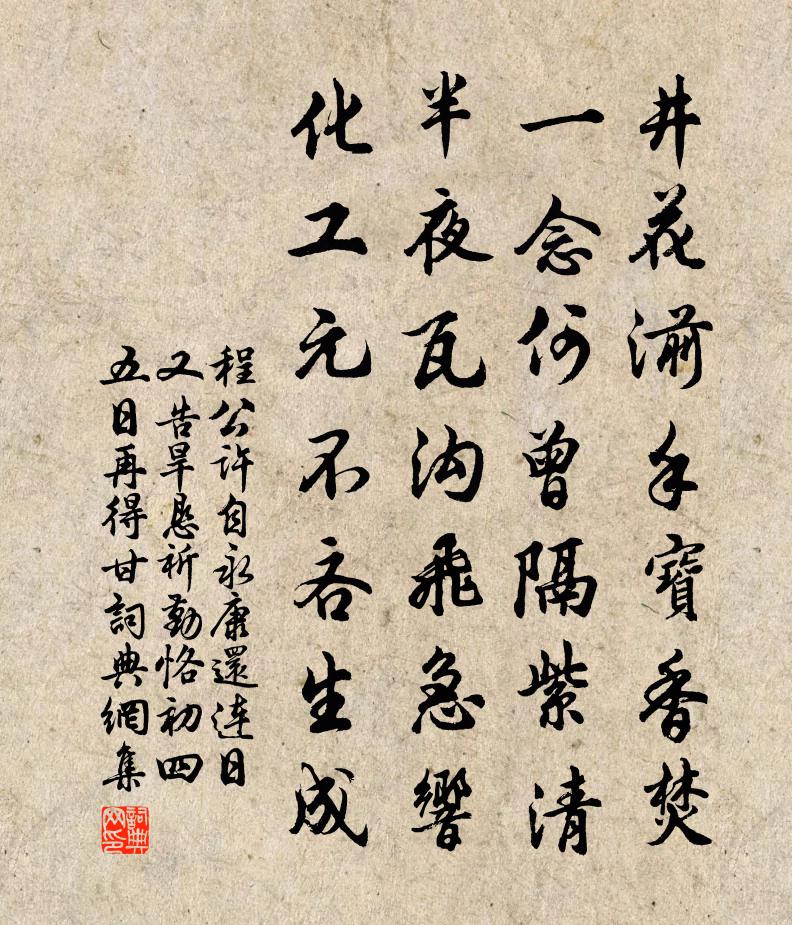 井花湔手寶香焚
一念何曾隔紫清
半夜瓦沟飛急響
化工元不吝生成
程公許自永康還連日
又告旱恳祈勤恪初四
五日再得甘詞典網集
詞典网印